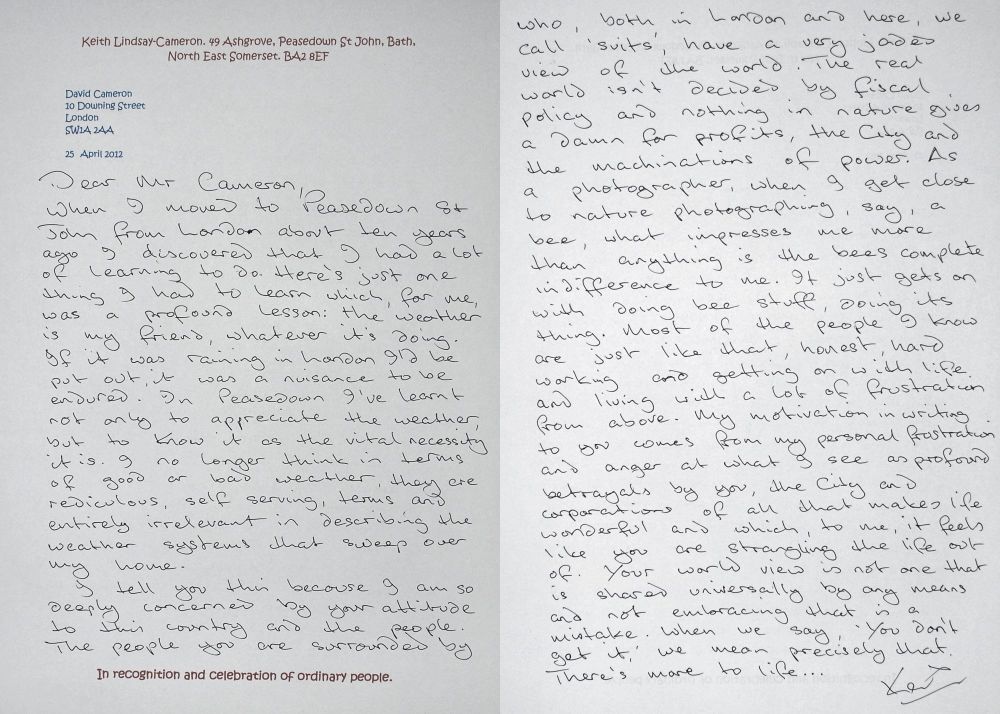 Keith Lindsay-Cameron. 49 Ashgrove, Peasedown St John, Bath,
North East Somerset. BA2 8EF
David Cameron
10 Downing Street
London
SW1A 2AA
25 April 2012
Dear Mr Cameron,
When I moved to Peasedown St
John from London about ten years
ago I discovered that I had a lot
of learning to do. Here's just one
thing I had to learn which, for me,
was a profound lesson: the weather
is my friend, whatever it's doing.
If it was raining in London I'd be
put out, it was a nuisance to be
endured. In Peasedown I've learnt
not only to appreciate the weather,
but to know it as the vital necessity
it is. I no longer think in terms
of good or bad weather, they are
rediculous, self serving, terms and
entirely irrelevant in describing the
weather systems that sweep over
my home.
I tell you this because I am so
deeply concerned by your attitude
to this country and the people.
The people you are surrounded by
In recognition and celebration of ordinary people.
who, both in London and here, we
call 'suits', have a very jaded
view of the world. The real
world isn't decided by fiscal
policy and nothing in nature gives
a damn for profits, the City and
the machinations of power. As
a photographer, when I get close
to nature photographing, say, a
bee, what impresses me more
than anything is the bees complete
indifference to me. It just gets on
with doing bee stuff, doing its
thing. Most of the people I know
are just like that, honest, hard
working and getting on with life.
and living with a lot of frustration
from above. My motivation in writing
to you comes from my personal frustration
and anger at what I see as profound
betrayals by you, the City and
corporations of all that makes life
wonderful and which, to me, it feels
like you are strangling the life out
of. Your world view is not one that
is shared universally by any means
and not embracing that is a
mistake. When we say, 'You don't
get it,' we mean precisely that.
There's more to life...